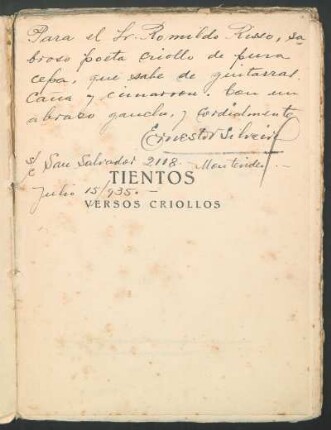 Para el Sr. Romildo Risso, sa-
broso poeta criollo de pura
cepa, que sabe de guitarras.
Caña y cimarron. Con un
abrazo gaucho, y cordialmente
Ernesto Silveira
s/c San Salvador 2118 - Montevideo -
TIENTOS
Julio 15/935. -
VERSOS CRIOLLOS